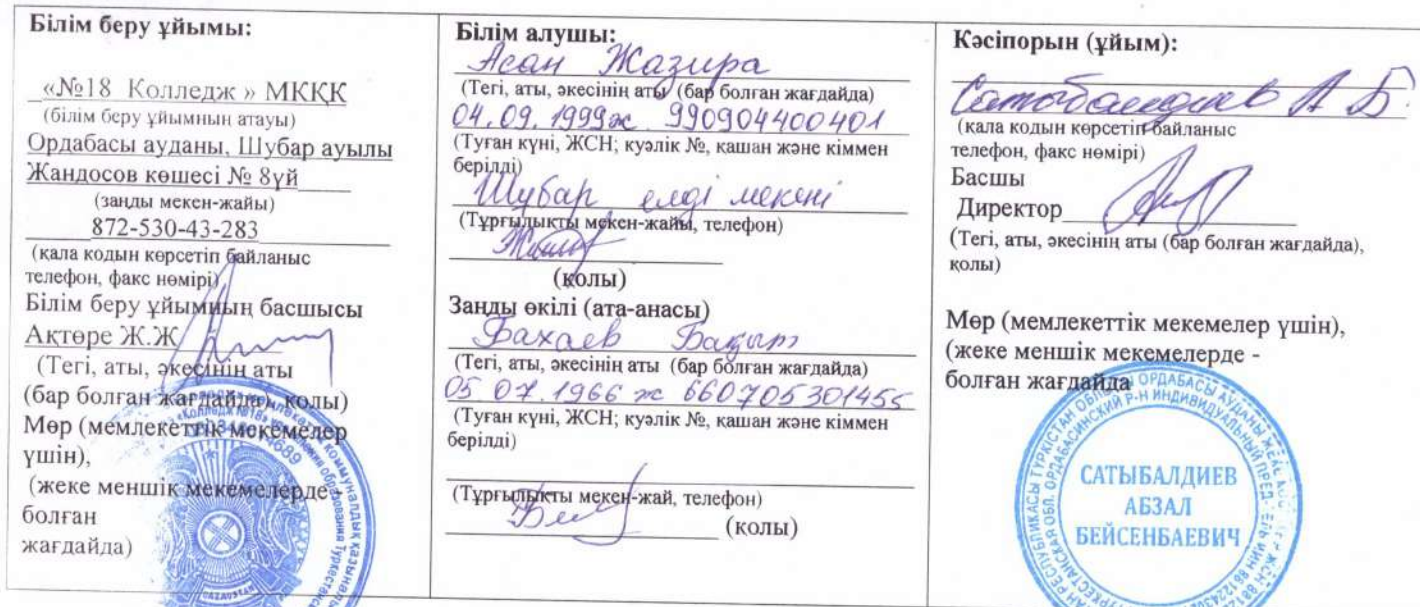 Білім беру ұйымы:
«№18 Колледж » МКҚК
(білім беру ұйымның атауы)
Ордабасы ауданы, Шубар ауылы
Жандосов көшесі № 8үй
(заңды мекен-жайы)
872-530-43-283
(қала кодын көрсетіп байланыс
телефон, факс нөмірі)
Білім беру ұйымның басшысы
Ақтөре Ж.Ж
(Тегі, аты, әкесінің аты
(бар болған жағдайда), қолы)
Мөр (мемлекеттік мекемелер
үшін),
(жеке меншік мекемелерде -
болған
жағдайда)
Білім алушы:
Асан Жазира
(Тегі, аты, әкесінің аты (бар болған жағдайда)
04.09.1999ж 990904400401
(Туған күні, ЖСН; куәлік №, қашан және кіммен
берілді)
Шубар елді мекені
(Тұрғылықты мекен-жайы, телефон)
(қолы)
Заңды өкілі (ата-анасы)
Бахаев Бақыт
(Тегі, аты, әкесінің аты (бар болған жағдайда)
05 07.1966 ж 660705301455
(Туған күні, ЖСН; куәлік №, қашан және кіммен
берілді)
(Тұрғылықты мекен-жай, телефон)
(қолы)
Кәсіпорын (ұйым):
Сатыбалдиев А Б.
(қала кодын көрсетіп байланыс
телефон, факс нөмірі)
Басшы
Директор
(Тегі, аты, әкесінің аты (бар болған жағдайда),
қолы)
Мөр (мемлекеттік мекемелер үшін),
(жеке меншік мекемелерде -
болған жағдайда
САТЫБАЛДИЕВ
АБЗАЛ
БЕЙСЕНБАЕВИЧ